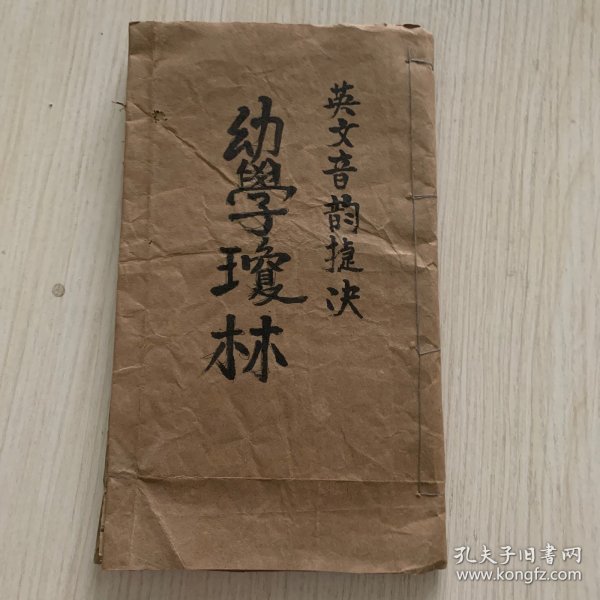 英文音韵捷决
幼學瓊林
孔夫子旧書网
www.kongfz.com